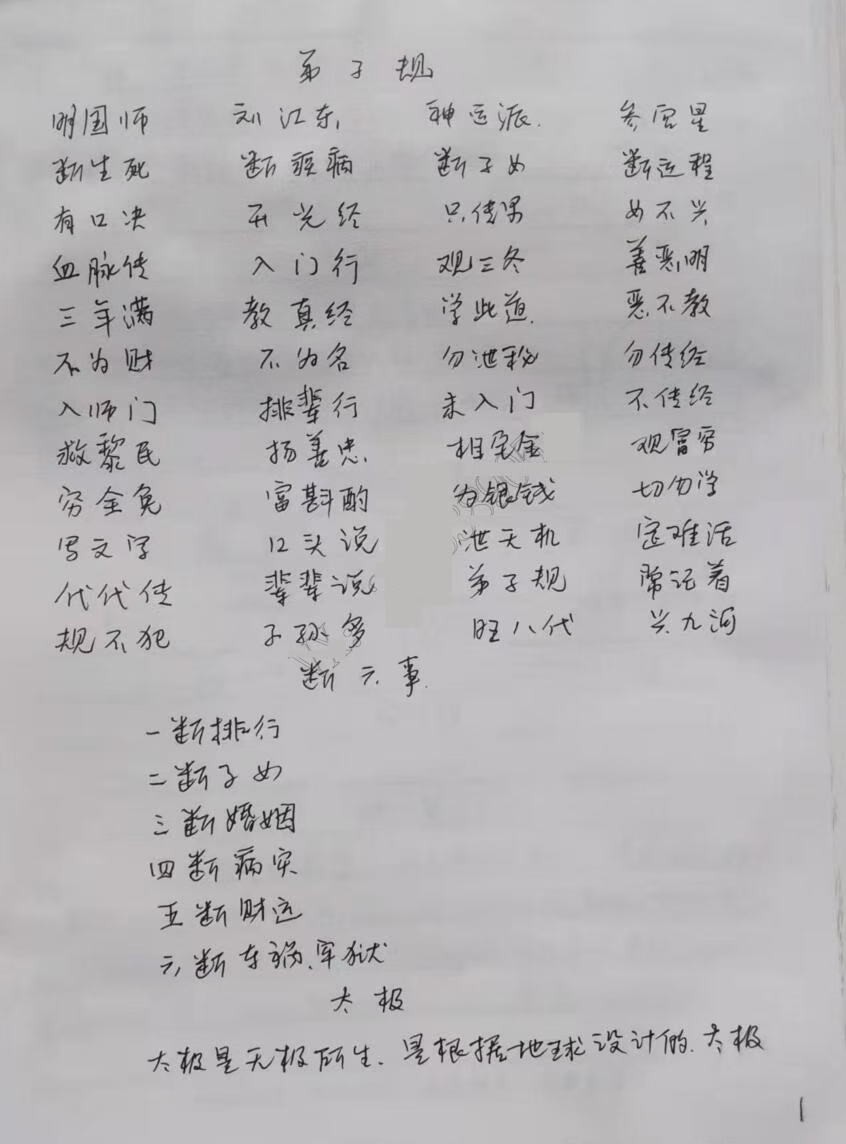 弟子规
明国师 刘江东 神运派. 参宫星
断生死 断疾病 断子女 断运程
有口决 开光经 只传男 女不兴
血脉传 入门行 观三冬 善恶明
三年满 教真经 学此道. 恶不教
不为财 不为名 勿泄秘 勿传经
入师门 排辈行 未入门 不传经
救黎民 扬善忠. 相至金 观富穷
穷全免 富斟酌 为银钱 切勿学
写文字 口头说 泄天机 定难活
代代传 辈辈说 弟子规 常记着
规不犯 子孙多 旺八代 兴九河
断六事.
一断排行
二断子女
三断婚姻
四断病灾
五断财运
六断车祸.牢狱
太极
太极是无极所生.是根据地球设计的.太极
1